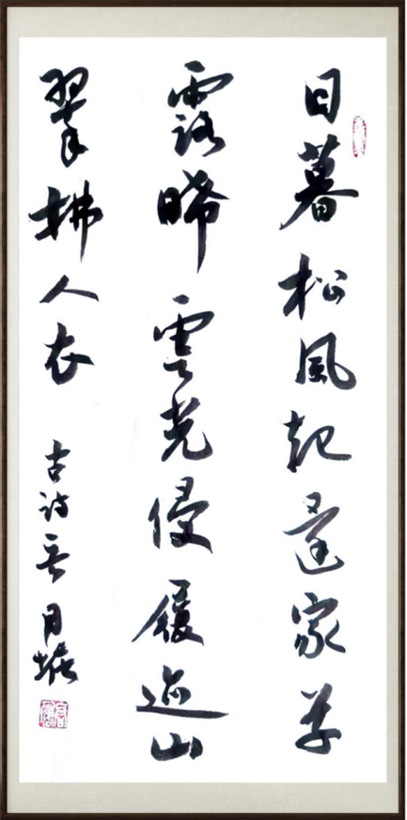 日暮松風起還家草
露晞雲光侵履迹山
翠拂人衣
古诗